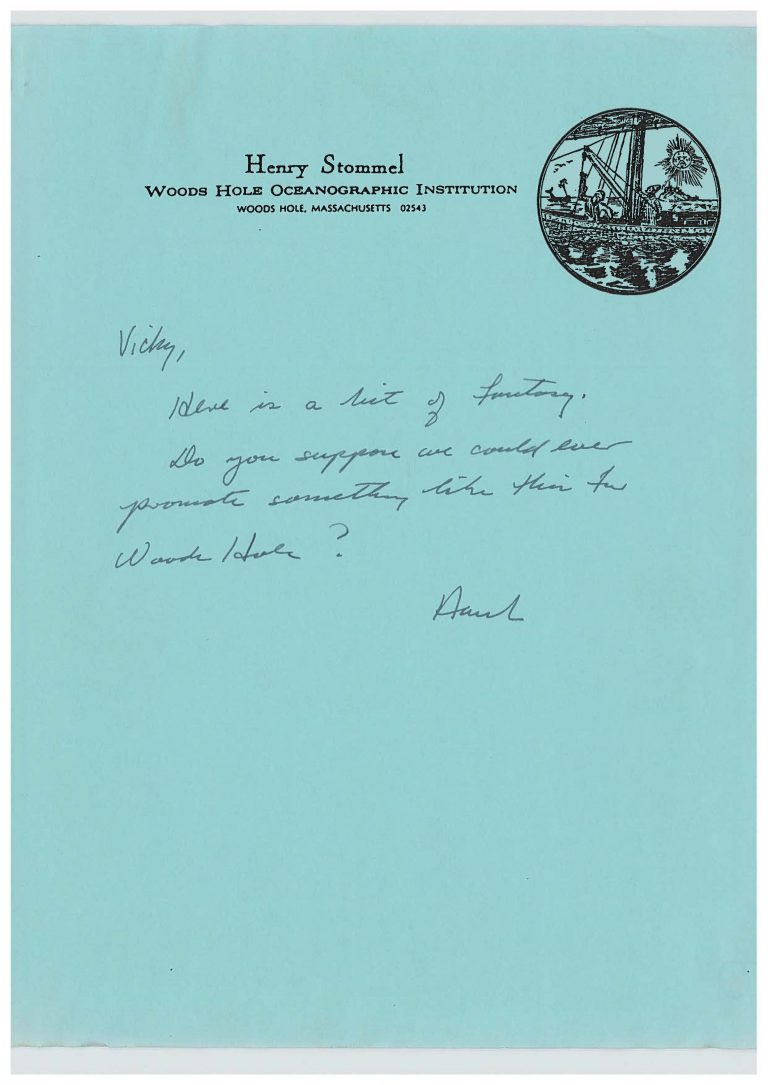 Henry Stommel
WOODS HOLE OCEANOGRAPHIC INSTITUTION
WOODS HOLE, MASSACHUSETTS 02543
Vicky,
Here is a bit of fantasy.
Do you suppose we could ever
promote something like this for
Woods Hole?
Hank